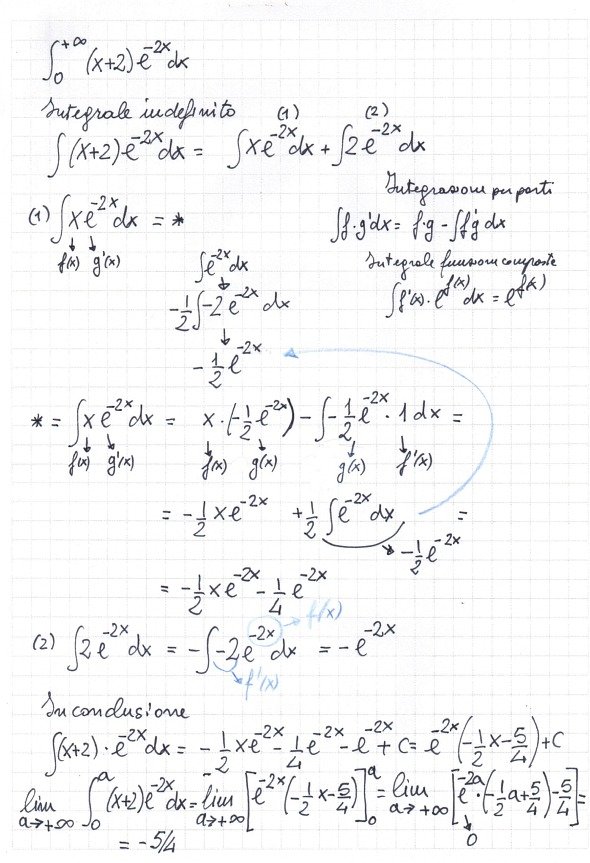 ∫₀^{+∞} (x+2) e^{-2x} dx
Integrale indefinito (1) (2)
∫ (x+2) e^{-2x} dx = ∫ x e^{-2x} dx + ∫ 2 e^{-2x} dx
Integrazione per parti
(1) ∫ x e^{-2x} dx = *
∫ f·g' dx = f·g - ∫ f'g dx
f(x) g'(x)
Integrale funzioni composte
∫ e^{-2x} dx
∫ f'(x)·e^{f(x)} dx = e^{f(x)}
-1/2 ∫ -2 e^{-2x} dx
-1/2 e^{-2x}
* = ∫ x e^{-2x} dx = x·(-1/2 e^{-2x}) - ∫ -1/2 e^{-2x} · 1 dx =
f(x) g'(x) f(x) g(x) g(x) f'(x)
= -1/2 x e^{-2x} + 1/2 ∫ e^{-2x} dx =
-1/2 e^{-2x}
= -1/2 x e^{-2x} - 1/4 e^{-2x}
f(x)
(2) ∫ 2 e^{-2x} dx = - ∫ -2 e^{-2x} dx = - e^{-2x}
f'(x)
In conclusione
∫ (x+2) · e^{-2x} dx = -1/2 x e^{-2x} - 1/4 e^{-2x} - e^{-2x} + C = e^{-2x} (-1/2 x - 5/4) + C
lim a→+∞ ∫₀^a (x+2) e^{-2x} dx = lim a→+∞ [e^{-2x} (-1/2 x - 5/4)]₀^a = lim a→+∞ [e^{-2a} · (-1/2 a + 5/4) - 5/4] =
0
= -5/4